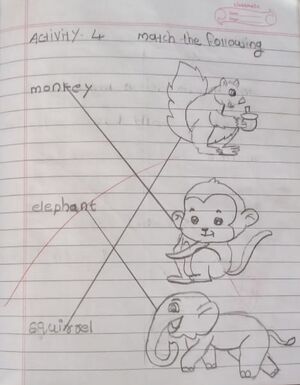 classmate
Activity. 4 Match the following
monkey
elephant
squirrel